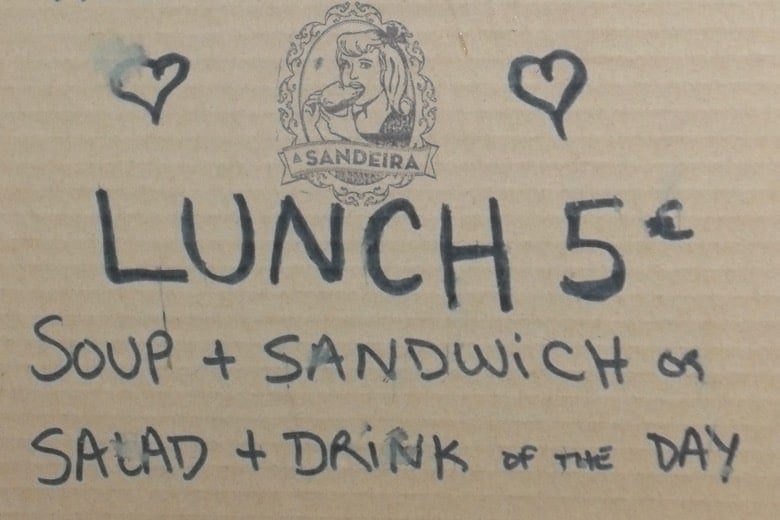 A SANDEIRA
LUNCH 5€
SOUP + SANDWiCH OR
SALAD + DRiNK OF THE DAY